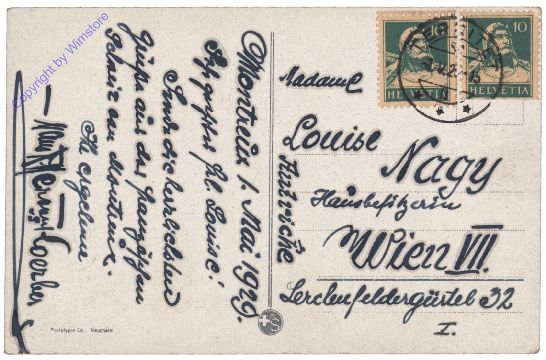 Copyright by Wimstore
Montreux 1. Mai 1929.
Sehr geehrte Frl. Louise!
Sende die herzlichsten
Grüße aus der
Schweiz
Ihr ergebener
Madame
Louise Nagy
Hausbesitzerin
Wien VII.
Lerchenfeldergürtel 32
I.
Autriche
10
HELVETIA
HELVETIA
Phototypie Co., Neuchâtel